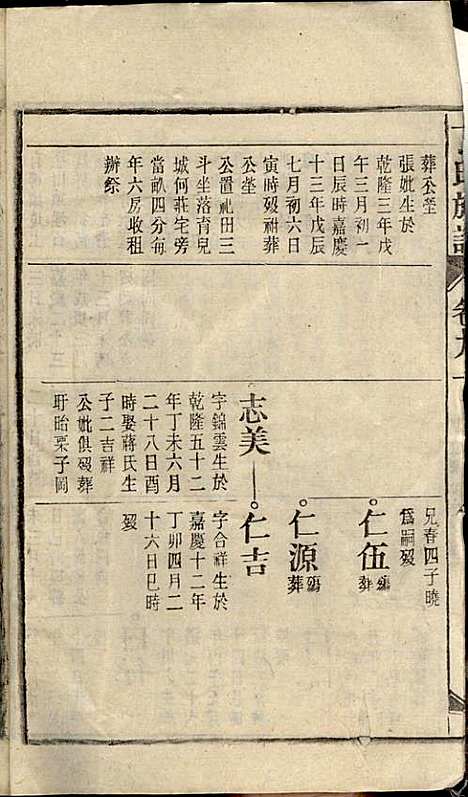 氏族譜
卷九
葬公塋
張妣生於
乾隆三年戊
午三月初一
日辰時嘉慶
十三年戊辰
七月初六日
寅時歿祔葬
公塋
公置祀田三
斗坐落育兒
城何莊宅旁
當畝四分每
年六房收租
辦祭
志美
字錦雲生於
乾隆五十二
年丁未六月
二十八日酉
時娶蔣氏生
子二吉祥
公妣俱歿葬
盱眙栗子岡
兄春四子曉
為嗣歿
仁伍
葬
仁源
葬
仁吉
字合祥生於
嘉慶十二年
丁卯四月二
十六日巳時
歿